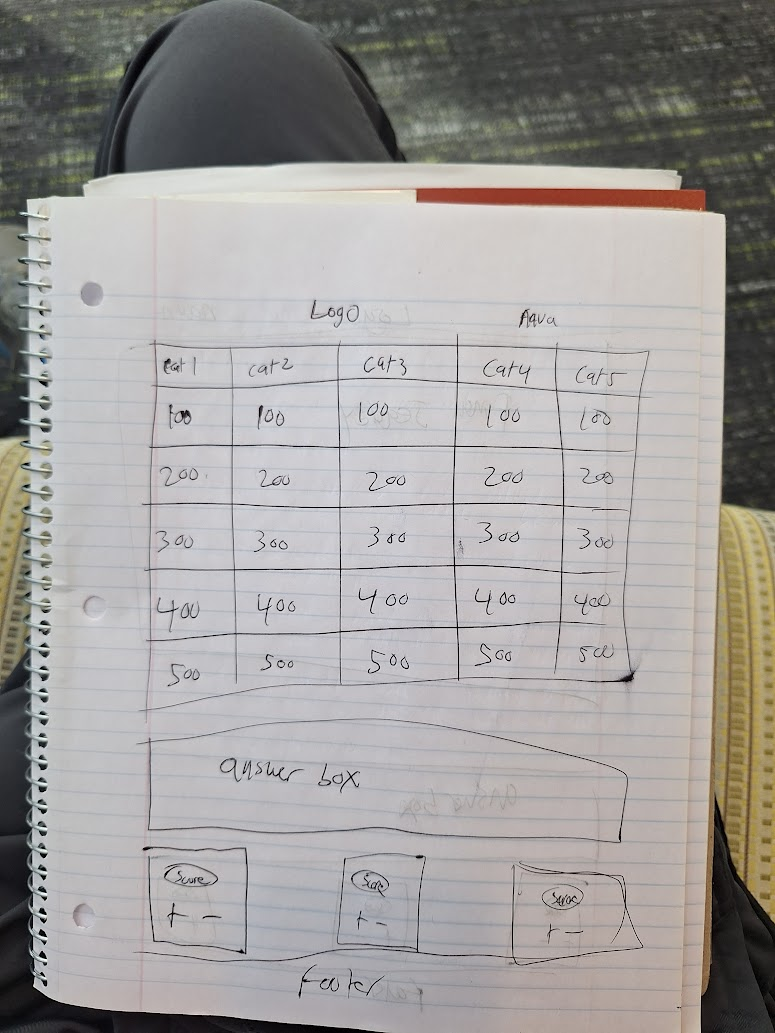 Logo Aqua
cat1 cat2 cat3 cat4 cat5
100 100 100 100 100
200 200 200 200 200
300 300 300 300 300
400 400 400 400 400
500 500 500 500 500
answer box
Score Score Score
+ - + - + -
footer